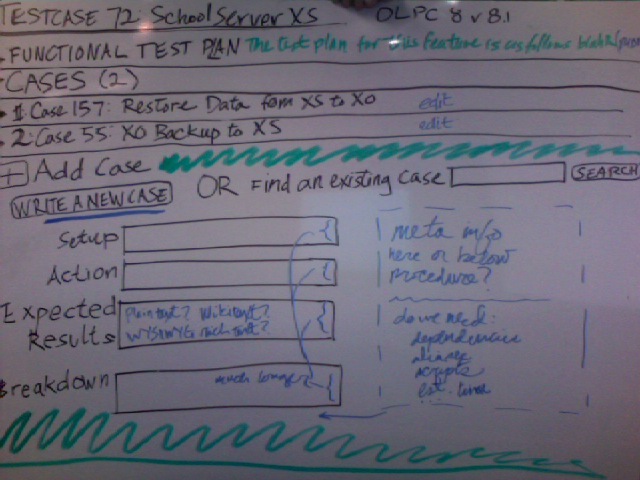 TESTCASE 72 School Server XS OLPC 8 v 8.1
FUNCTIONAL TEST PLAN The test plan for this feature is as follows blah
CASES (2)
1: Case 157: Restore Data from XS to XO edit
2: Case 55: XO Backup to XS edit
+ Add Case
WRITE A NEW CASE OR Find an existing case SEARCH
Setup
Action
Expected Results
Plaintext? Wikitext?
WYSIWYG rich text?
Breakdown
much longer
meta info
here or below
procedure?
do we need:
dependencies
aliases
scripts
est. time